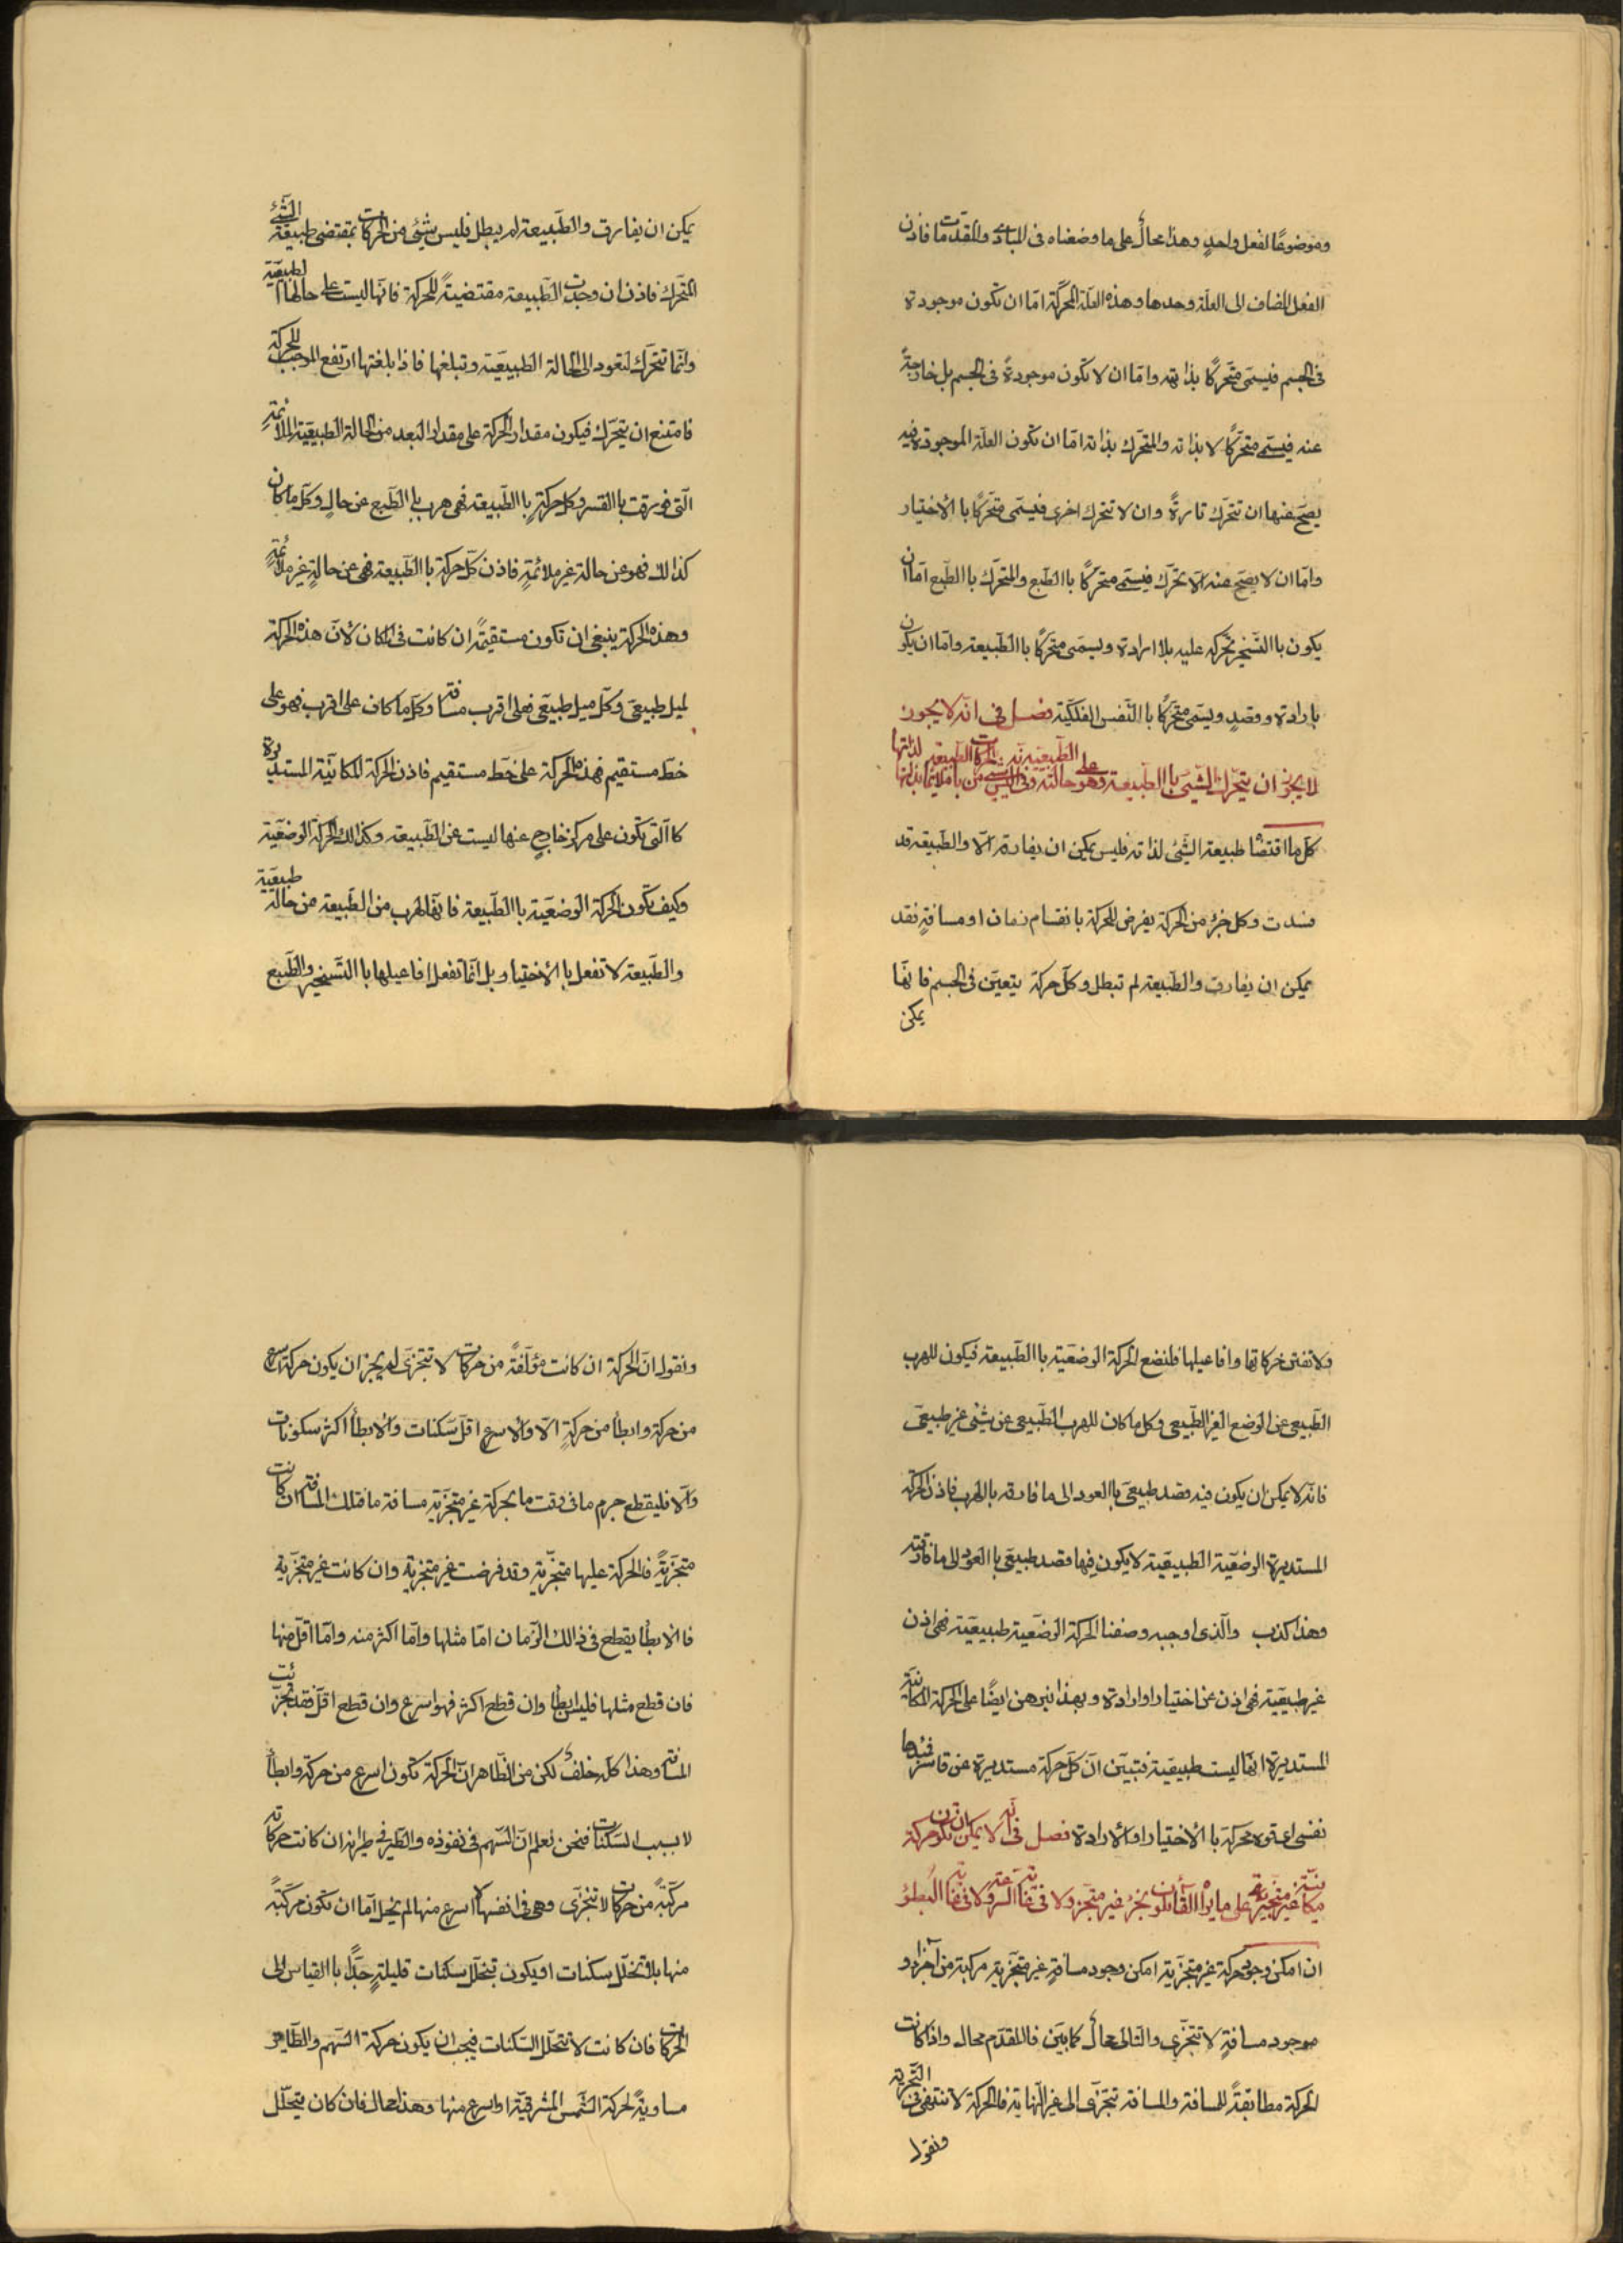 وموضوعًا لفعل واحدٍ وهذا محالٌ على ما وضعناه فى المبادئ والمقدّمات فاذن
الفعل المضاف الى العلّة وحدها وهذه العلّة المحرّكة امّا ان تكون موجودة
فى الجسم فيسمّى متحرّكًا بذاته وامّا ان لا تكون موجودةً فى الجسم بل خارجةً
عنه فيسمّى متحرّكًا لا بذاته والمتحرّك بذاته امّا ان تكون العلّة الموجودة فيه
يصحّ عنها ان تتحرّك تارةً وان لا تتحرك اخرى فيسمّى متحرّكًا با الأختيار
وامّا ان لا يصحّ عنه الّا تحرّك فيسمّى متحرّكًا با الطّبع والمتحرّك با الطّبع امّا ان
يكون با التّسخير محركه عليه بلا ارادة ويسمّى متحرّكًا با الطّبيعة وامّا ان يكون
بارادة وقصدٍ ويسمّى متحرّكًا با النّفس الفلكيّة فصل فى انّه لا يجوز
لا يجوز ان يتحرّك الشّيئ با الطّبيعة وهو على حالته الطّبيعيّة
كلّ ما اقتضا طبيعة الشّيئ لذاته فليس يمكن ان يفارقه الّا والطّبيعة قد
فسدت وكل جزءٍ من الحركة يفرض للحركة بانقسام زمان او مسافةٍ فقد
يمكن ان يفارق والطّبيعة لم تبطل وكلّ حركة يتعيّن فى الجسم فانّها
يمكن
يمكن ان يفارق والطّبيعة لم يبطل فليس شيئ من الحركات بمقتضى طبيعة الشّيئ
المتحرّك فاذن ان وجدت الطّبيعة مقتضيةً للحركة فانّها ليست على حالها الطبيعيّة
وانّما تتحرّك لتعود الى الحالة الطّبيعيّة وتبلغها فاذا بلغتها ارتفع الموجب للحركة
فامتنع ان يتحرّك فيكون مقدار الحركة على مقدار البعد من الحالة الطّبيعيّة الملائمةِ
الّتى فورقت با القسر وكل حركةٍ با الطّبيعة فهى هرب با الطّبع عن حالٍ وكلّ ما كان
كذالك فهو عن حالة غير ملائمةٍ فاذن كلّ حركة با الطّبيعة فهى عن حالةٍ غير ملائمةٍ
وهذه الحركة ينبغى ان تكون مستقيمةً ان كانت فى المكان لأنّ هذه الحركة
لميل طبيعىّ وكلّ ميل طبيعّى فعلى اقرب مسافة وكلّ ما كان على اقرب فهو على
خطّ مستقيم فهذه الحركة على خطّ مستقيم فاذن الحركة المكانيّة المستديرة
كا الّتى تكون على مركز خارجٍ عنها ليست عن الطّبيعة وكذالك الحركة الوضعيّة
وكيف تكون الحركة الوضعيّة با الطّبيعة فانّها لهرب من الطّبيعة من حالة طبيعيّة
والطّبيعة لا تفعل با الأختيار بل انّما تفعل افاعيلها با التّسخير والطّبع
ولا تفنن حركاتها وافاعيلها فلنضع الحركة الوضعيّة با الطّبيعة فيكون للهرب
الطّبيعى عن الوضع الغير الطّبيعى وكل ما كان للهرب الطّبيعى عن شيئ غير طبيعىّ
فانّه لا يمكن ان يكون فيه قصد طبيعىّ با العود الى ما فارقه با الهرب فاذن الحركة
المستديرة الوضعيّة الطّبيعيّة لا يكون فيها قصد طبيعىّ با العود الى ما فارقته
وهذا كذب والّذى اوجبه وصفنا الحركة الوضعيّة طبيعيّة فهى اذن
غير طبيعيّة فهى اذن عن اختيار او ارادة وبهذا نبرهن ايضًا على الحركة المكانيّة
المستديرة انّها ليست طبيعيّة فتبيّن انّ كلّ حركة مستديرة عن قاسر
نفس او قوة محركة با الأختيار او الأرادة فصل فى انّه لا يمكن ان تكون حركة
ان امكن وجود حركة غير متجزّية امكن وجود مسافةٍ غير متجزّية مركبة من اجزاء
موجود مسافةٍ لا تتجزّى والتالى محالٌ كما بيّن فا المقدّم محال واذا كانت
الحركة مطابقةً للمسافة والمسافة تتجزّى الى غير النّهاية فا الحركة لا تنتهى فى التّجزية
ونقول
ونقول انّ الحركة ان كانت مؤلّفةً من حركات لا تتجزّى لم يجز ان يكون حركة اسرع
من حركة وابطأ من حركةٍ الّا والأسرع اقلّ سكنات والأبطأ اكثر سكونات
والّا فليقطع جرم ما فى وقت ما بحركة غير متجزّية مسافة ما فتلك المسافة ان كانت
متجزّيةً فا الحركة عليها متجزّية وقد فرضت غير متجزية وان كانت غير متجزّية
فا الأبطأ يقطع فى ذالك الزّمان امّا مثلها وامّا اكثر منه وامّا اقلّ منها
فان قطع مثلها فليس ابطأ وان قطع اكثر فهو اسرع وان قطع اقلّ فقد تجزّئت
المسافة وهذا كلّه خلفٌ لكن من الظّاهر انّ الحركة تكون اسرع من حركة وابطأ
لا بسبب السّكنات فنحن نعلم انّ السّهم فى نفوذه والطّير فى طيرانه ان كانت حركاته
مركّبةً من حركات لا تتجزّى وهى فى انفسها لا اسرع منها لم يخل امّا ان تكون مركّبةً
منها بلا تخلّل سكنات او يكون تتخلّل سكنات قليلةٍ جدًّا با القياس الى
الحركات فان كانت لا تتخلّل السّكنات فيجب ان يكون حركة السّهم والطّاير
مساويةً لحركة الشّمس المشرقيّة او اسرع منها وهذا محال فان كان يتخلّل